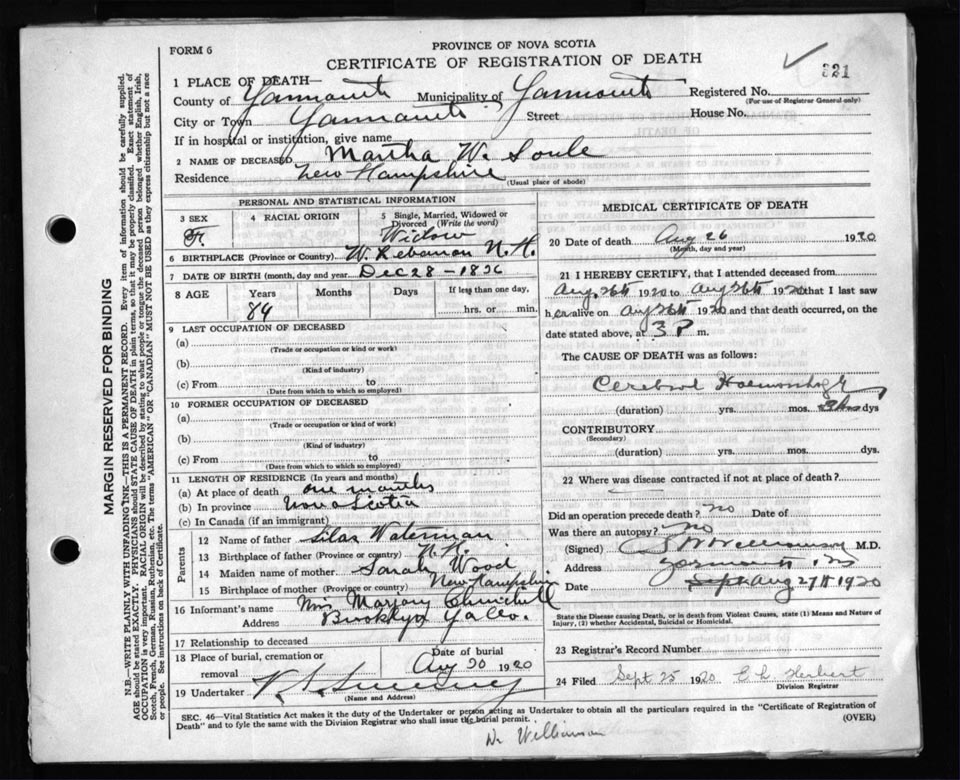 FORM 6
PROVINCE OF NOVA SCOTIA
CERTIFICATE OF REGISTRATION OF DEATH
321
1 PLACE OF DEATH—
County of Yarmouth Municipality of Yarmouth Registered No.
(For use of Registrar General only)
City or Town Yarmouth Street House No.
If in hospital or institution, give name
2 NAME OF DECEASED Martha W. Soule
Residence New Hampshire
(Usual place of abode)
PERSONAL AND STATISTICAL INFORMATION
3 SEX
F.
4 RACIAL ORIGIN
5 Single, Married, Widowed or Divorced (Write the word)
Widow
6 BIRTHPLACE (Province or Country) W. Lebanon N.H.
7 DATE OF BIRTH (month, day and year) Dec 28 — 1836
8 AGE Years Months Days If less than one day,
hrs. or min.
9 LAST OCCUPATION OF DECEASED
(a)
(Trade or occupation or kind or work)
(b)
(Kind of industry)
(c) From to
(Date from which to which so employed)
10 FORMER OCCUPATION OF DECEASED
(a)
(Trade or occupation or kind of work)
(b)
(Kind of industry)
(c) From to
(Date from which to which so employed)
11 LENGTH OF RESIDENCE (In years and months)
(a) At place of death one months
(b) In province Nova Scotia
(c) In Canada (if an immigrant)
Parents
12 Name of father Silas Waterman
13 Birthplace of father (Province or country) N.H.
14 Maiden name of mother Sarah Wood
15 Birthplace of mother (Province or country) New Hampshire
16 Informant's name Mrs Marjory Churchill
Address Brooklyn Ya Co.
17 Relationship to deceased
18 Place of burial, cremation or removal
Date of burial
Aug 30 1920
19 Undertaker V. S. Sweeney
(Name and Address)
MEDICAL CERTIFICATE OF DEATH
20 Date of death Aug 26 1920
(Month, day and year)
21 I HEREBY CERTIFY, that I attended deceased from
Aug. 26th 1920 to Aug 26th 1920 that I last saw
her alive on Aug 26th 1920 and that death occurred, on
date stated above, at 3 P m.
The CAUSE OF DEATH was as follows:
Cerebral Haemorrhage
(duration) yrs. mos. dys
CONTRIBUTORY
(Secondary)
(duration) yrs. mos. dys.
22 Where was disease contracted if not at place of death?
Did an operation precede death? no Date of
Was there an autopsy? no
(Signed) Williamson M.D.
Address Yarmouth N.S.
Date Sept Aug 27th 1920
State the Disease causing Death, or is death from Violent Causes, state (1) Means and Nature of
Injury, (2) whether Accidental, Suicidal or Homicidal.
23 Registrar's Record Number
24 Filed Sept 25 1920 C L Herbert
Division Registrar
SEC. 46—Vital Statistics Act makes it the duty of the Undertaker or person acting as Undertaker to obtain all the particulars required in the "Certificate of Registration of
Death" and to fyle the same with the Division Registrar who shall issue the burial permit.
(OVER)
Dr Williamson
MARGIN RESERVED FOR BINDING
N.B.—WRITE PLAINLY WITH UNFADING INK—THIS IS A PERMANENT RECORD. Every item of information should be carefully supplied.
AGE should be stated EXACTLY. PHYSICIANS should STATE CAUSE OF DEATH in plain terms, so that it may be properly classified. Exact statement of
OCCUPATION is very important. RACIAL ORIGIN will be described by stating to what people or tongue the deceased person belonged whether English, Irish,
Scotch, French, German, Russian, Ruthenian, etc. The terms "AMERICAN" or "CANADIAN" MUST NOT BE USED as they express citizenship but not a race
or people. See instructions on back of Certificate.